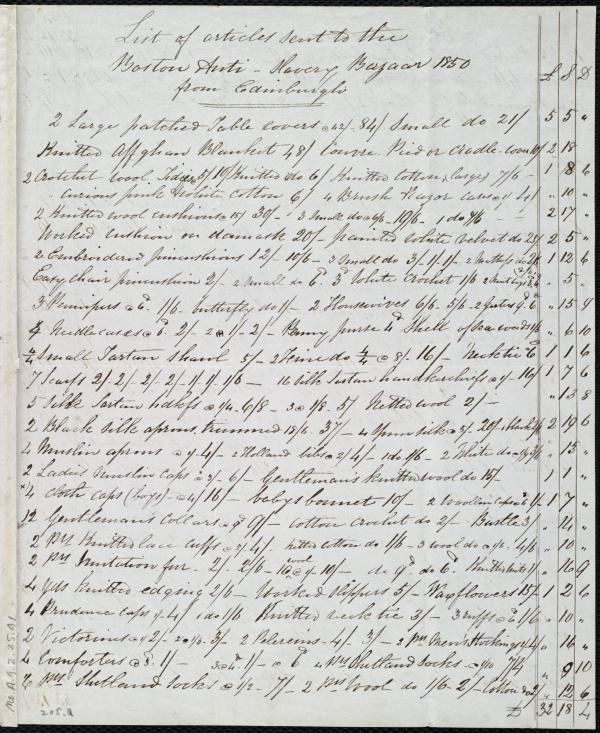 List of articles sent to the
Boston Anti-Slavery Bazaar 1850
from Edinburgh
£ S D
2 Large patched Table covers @ 42/- 84/ Small do 21/ 5 5 "
Knitted Affghan Blanket 48/ Pied or cradle-cover 10/ 2 18
2 Crotchet wool 5/ 10/ Knitted do 6/ Knitted Cotton (large) 7/6 - 1 8 6
curious pink & white cotton 6/ 4 Brush & razor cases @ 1/ 4/ " 10 "
2 Knitted wool cushions @ 15/ 30/- 3 Small do @ 6/6 19/6 - 1 do 7/6 - 2 17 "
Worked cushion on damask 20/- painted white velvet do 25/ 2 5 "
2 Embroidered pincushions 12/ 10/6 - 3 Small do 3/. 1/. 1/- 1 12 6
Easy chair pincushion 2/- 2 small do 6d. 3d White crochet 1/6 " 5 "
3 Penwipers @ 6d. 1/6 - butterfly do 1/- 2 Housewives 6/6. 5/6 - " 15 9
4 Needlecases @ 6d 2/- 2 @ 1/- 2/- Penny purse 4d Shell of sea weeds 1/6 " 6 10
4/4 Small Tartan shawl 5/- 2 Fine do 4/4 @ 8/- 16/- Necktie 6d 1 1 6
7 Scarfs 2/- 2/- 2/- 2/- 1/. 1/. 1/6 - 16 Silk Tartan handkerchiefs @ 1/- 16/ 1 7 6
5 Silk Tartan hdkfs @ 1/4. 6/8 - 3 @ 1/8. 5/ Netted wool 2/- " 13 8
2 Black silk aprons, trimmed 18/6. 37/- 4 Spun silk @ 5/- 20/ 1 black 2/6 2 19 6
4 Muslin aprons @ 1/ 4/- 2 Holland bibs @ 2/ 4/- 1 do 1/6 - 2 White do " 13 "
2 Ladies muslin caps @ 3/- 6/- Gentlemans knitted wool do 15/- 1 1 "
4 cloth caps (boys) @ 4/ 16/- baby's bonnet 10/- 2 1 7 "
12 Gentlemans Collars @ 9d 9/- cotton crochet do 2/- Bustle 3/ " 14 "
2 prs Knitted lace cuffs @ 2/- 4/. netted cotton do 1/6 - 3 wool do @ 1/6. 4/6 " 10 "
2 prs imitation fur 2/. 2/6 - 10 wool @ 1/- 10/- do 9d do 6d. 1/ " 16 9
4 yds Knitted edging 2/6 - Worked slippers 5/- Wax flowers 15/- 1 2 6
4 Prudence caps @ 1/- 4/ 1 do 1/6 Knitted necktie 3/- 3 ruffs @ 6d 1/6 " 10 "
2 Victorines @ 1/ 2/- 2 @ 1/6. 3/- 2 Polereens - 4/- 3/- 2 prs Men's Stockings @ 2/ 4/ " 16 "
4 Comforters @ 3d. 1/- 3 @ 4d. 1/- 1 @ 6d 4 prs Shetland socks - @ 1/10 7/4 " 9 10
6 prs Shetland socks @ 1/2 - 7/- 2 prs Wool do 1/6. 2/- Cotton do 2/ " 12 6
£ 32 18 4
Ms. A. 9. 2. 25. 41.
205.a